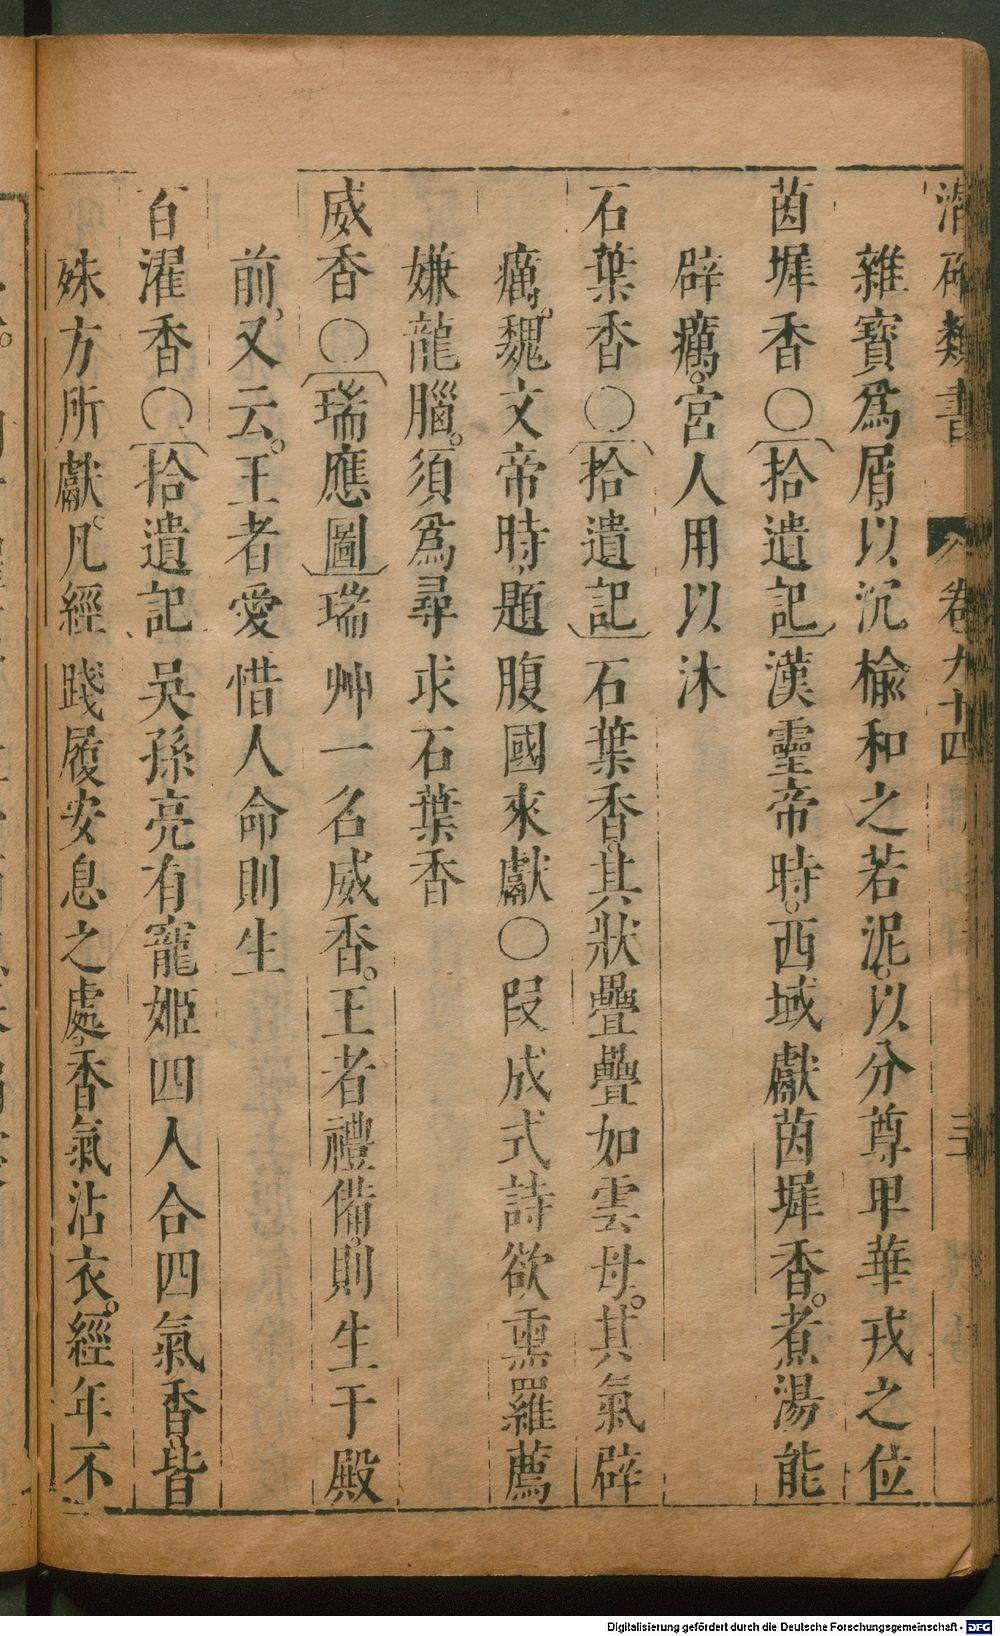 潛確類書 卷九十四 三
雜寶爲屑以沉楡和之若泥以分尊卑華戎之位
茵墀香○拾遺記漢靈帝時西域獻茵墀香煮湯能
辟癘宮人用以沐
石葉香○拾遺記石葉香其狀疊疊如雲母其氣辟
癘魏文帝時題腹國來獻○段成式詩欲熏羅薦
嫌龍腦須爲尋求石葉香
威香○瑞應圖瑞艸一名威香王者禮備則生于殿
前又云王者愛惜人命則生
百濯香○拾遺記吳孫亮有寵姬四人合四氣香皆
殊方所獻凡經踐履安息之處香氣沾衣經年不
Digitalisierung gefördert durch die Deutsche Forschungsgemeinschaft - DFG